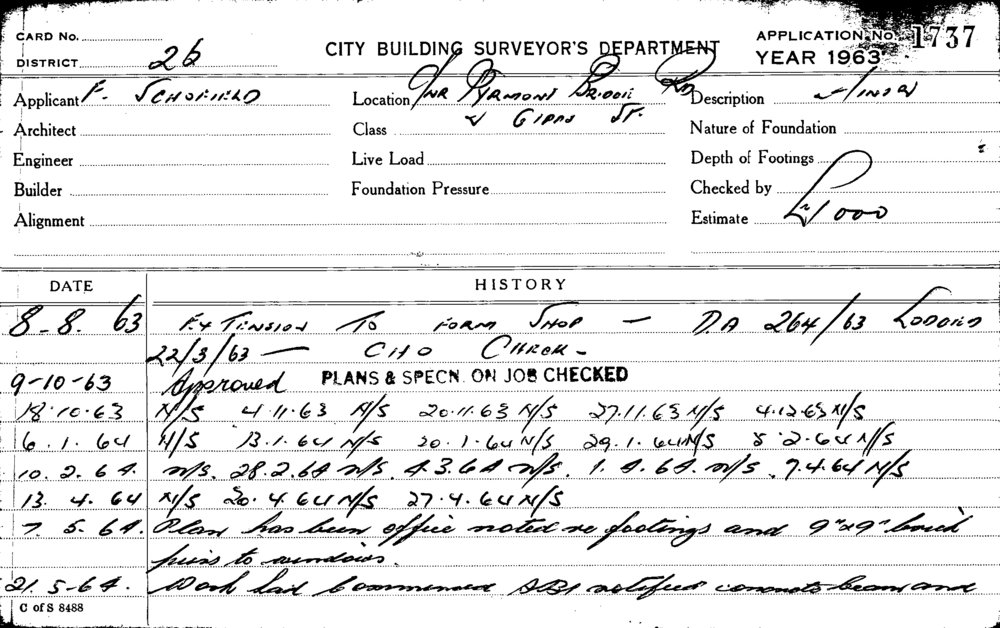 CARD No.
DISTRICT 26
CITY BUILDING SURVEYOR'S DEPARTMENT
APPLICATION No. 1737
YEAR 1963
Applicant F. SCHOFIELD
Architect
Engineer
Builder
Alignment
Location CNR PYRMONT BRIDGE RD
& GIPPS ST.
Class
Live Load
Foundation Pressure
Description
Nature of Foundation
Depth of Footings
Checked by
Estimate £1000
DATE HISTORY
8-8.63 EXTENSION TO FORM SHOP — DA 264/63 LODGED
22/3/63 — CHO CHECK-
9-10-63 Approved PLANS & SPECN. ON JOB CHECKED
18.10.63 N/S 4.11.63 N/S 20.11.63 N/S 27.11.63 N/S 4.12.63 N/S
6.1.64 N/S 13.1.64 N/S 20.1.64 N/S 29.1.64 N/S 5.2.64 N/S
10.2.64. N/S. 28.2.64 N/S. 4.3.64 N/S. 1.4.64. N/S. 7.4.64 N/S
13.4.64 N/S 20.4.64 N/S 27.4.64 N/S
7.5.64. Plan has been office noted re footings and 9"x9" brick
piers to windows.
21.5.64. Work had commenced notified concrete beam and
C of S 8488